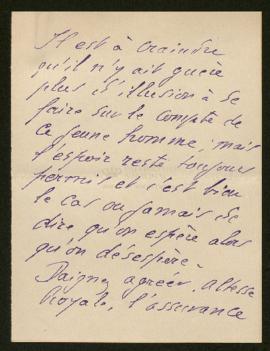 Il est à craindre
qu'il n'y ait guère
plus d'illusion à se
faire sur le compte de
ce jeune homme, mais
l'espoir reste toujours
permis et c'est bien
le cas ou jamais de
dire qu'on espère alors
qu'on désespère.
Daignez agréer, Altesse
Royale, l'assurance